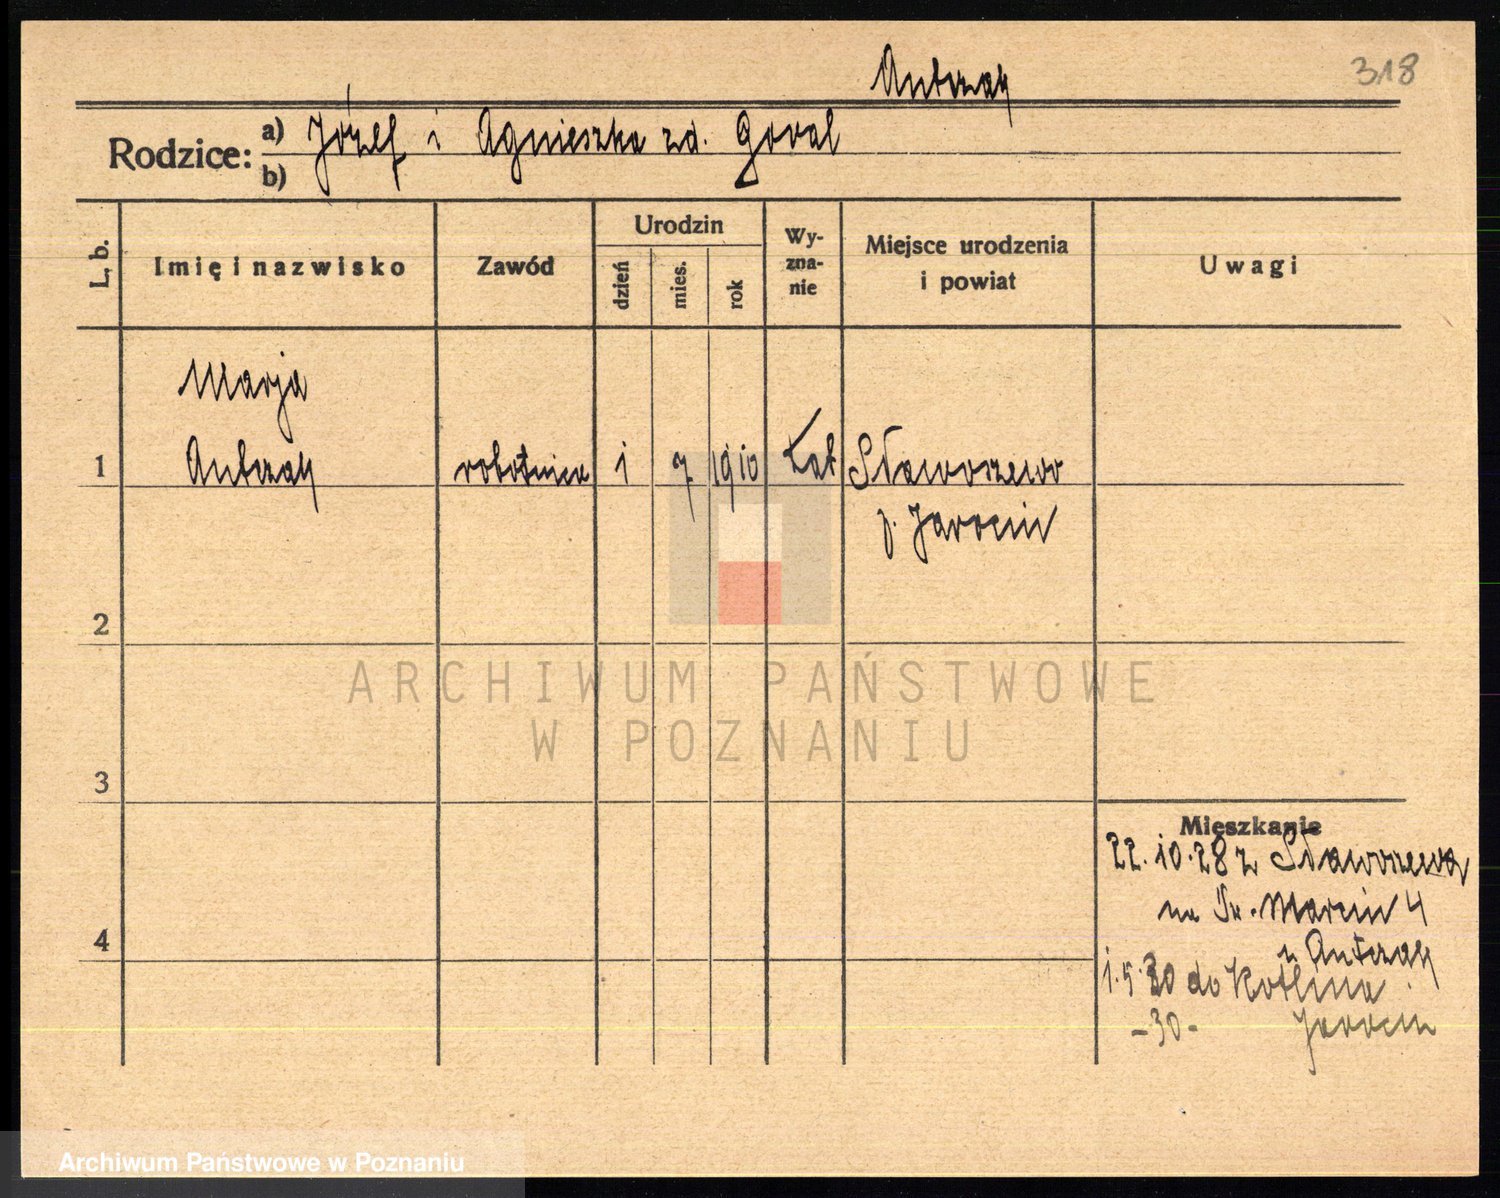 Antczak
318
Rodzice: a) Józef i Agnieszka zd. Goral
b)
L. b.
Imię i nazwisko
Zawód
Urodzin
dzień
mies.
rok
Wy-
zna-
nie
Miejsce urodzenia
i powiat
Uwagi
Marja
1 Antczak robotnica 1 7 1910 kat Sławoszewo
p. Jarocin
2
3
4
ARCHIWUM PAŃSTWOWE
W POZNANIU
Mieszkanie
22.10.28 z Sławoszewa
na Św. Marcin 4
u Antczak
1.5.30 do Kotlina
-30- Jarocin
Archiwum Państwowe w Poznaniu